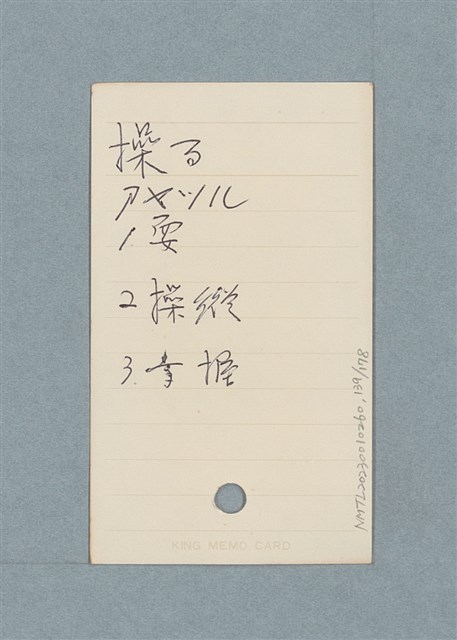 操る
アヤツル
1. 耍
2 操縱
3. 掌握
KING MEMO CARD
NMTL20230010260.139/178